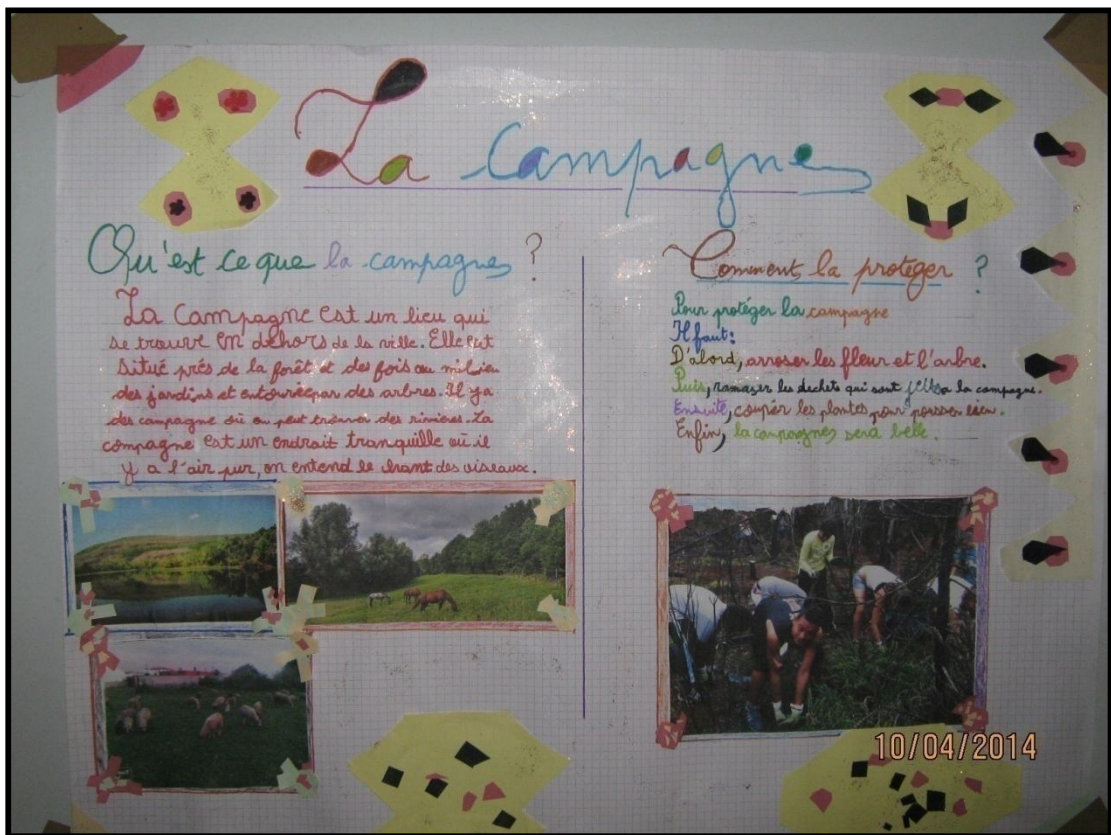 La Campagne
Qu'est ce que la campagne ?
La Campagne est un lieu qui
se trouve en dehors de la ville. Elle est
situé près de la forêt et des fois au milieu
des jardins et entourée par des arbres. Il ya
des campagne où on peut trouver des rivières. La
compagne est un endrait tranquille où il
y a l'air pur, on entend le chant des oiseaux.
Comment la protéger ?
Pour protéger la campagne
Il faut:
D'abord, arroser les fleur et l'arbre.
Puis, ramaser les dechets qui sont jetés a la compagne.
Ensuite, coupér les plantes pour pousser bien.
Enfin, la campagne sera belle.
10/04/2014